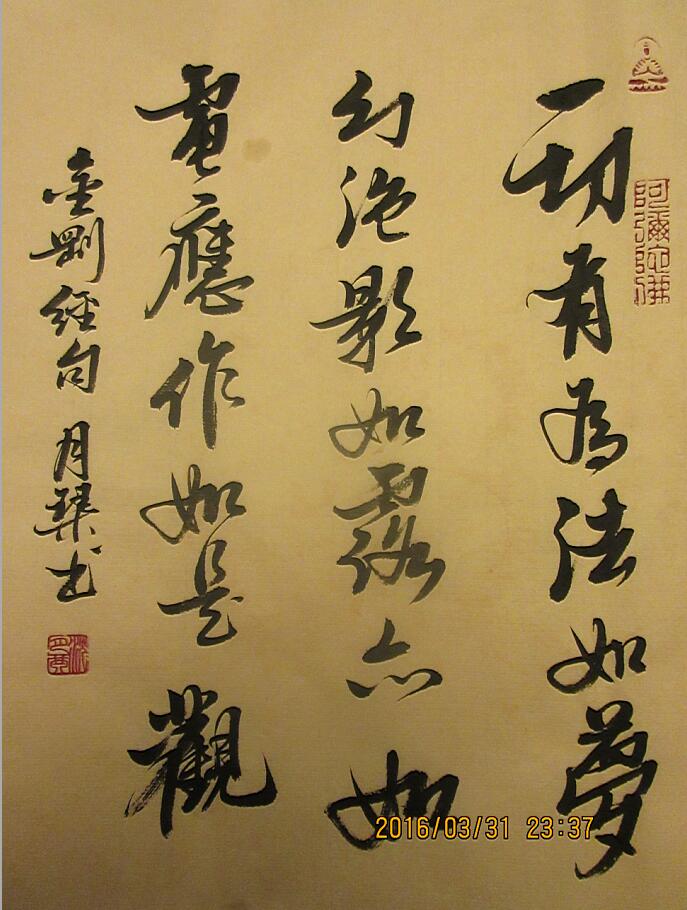 阿彌陀佛
一切有為法如夢
幻泡影如露亦如
電應作如是觀
金剛經句 月琹书
2016/03/31 23:37